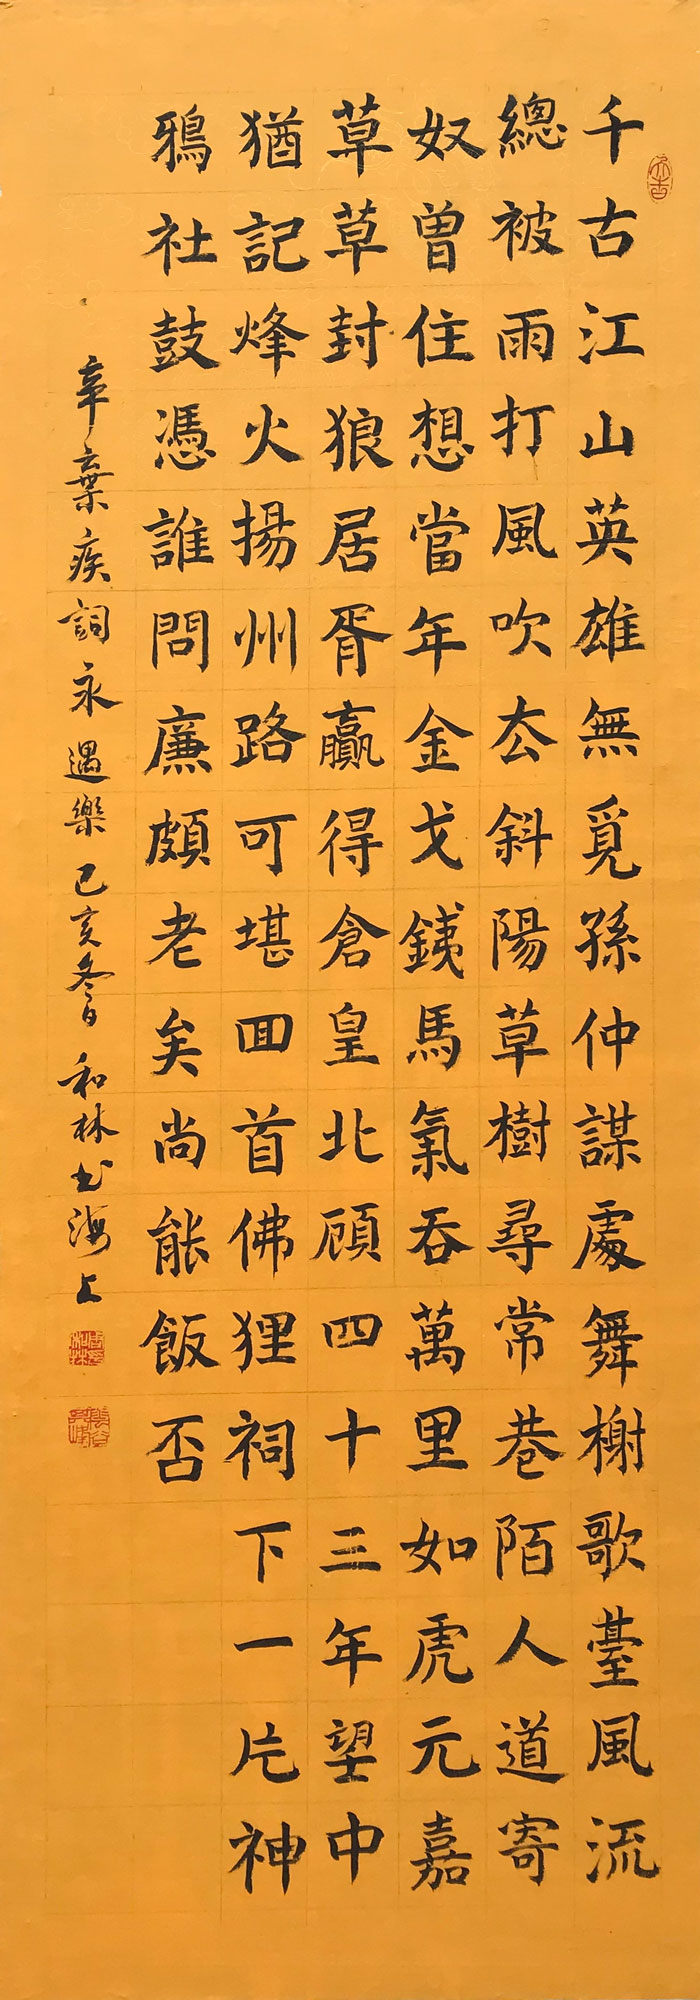 千古江山英雄無覓孫仲謀處舞榭歌臺風流
總被雨打風吹去斜陽草樹尋常巷陌人道寄
奴曾住想當年金戈鐵馬氣吞萬里如虎元嘉
草草封狼居胥贏得倉皇北顧四十三年望中
猶記烽火揚州路可堪回首佛狸祠下一片神
鴉社鼓憑誰問廉頗老矣尚能飯否
辛棄疾詞永遇樂己亥冬日和林书海上